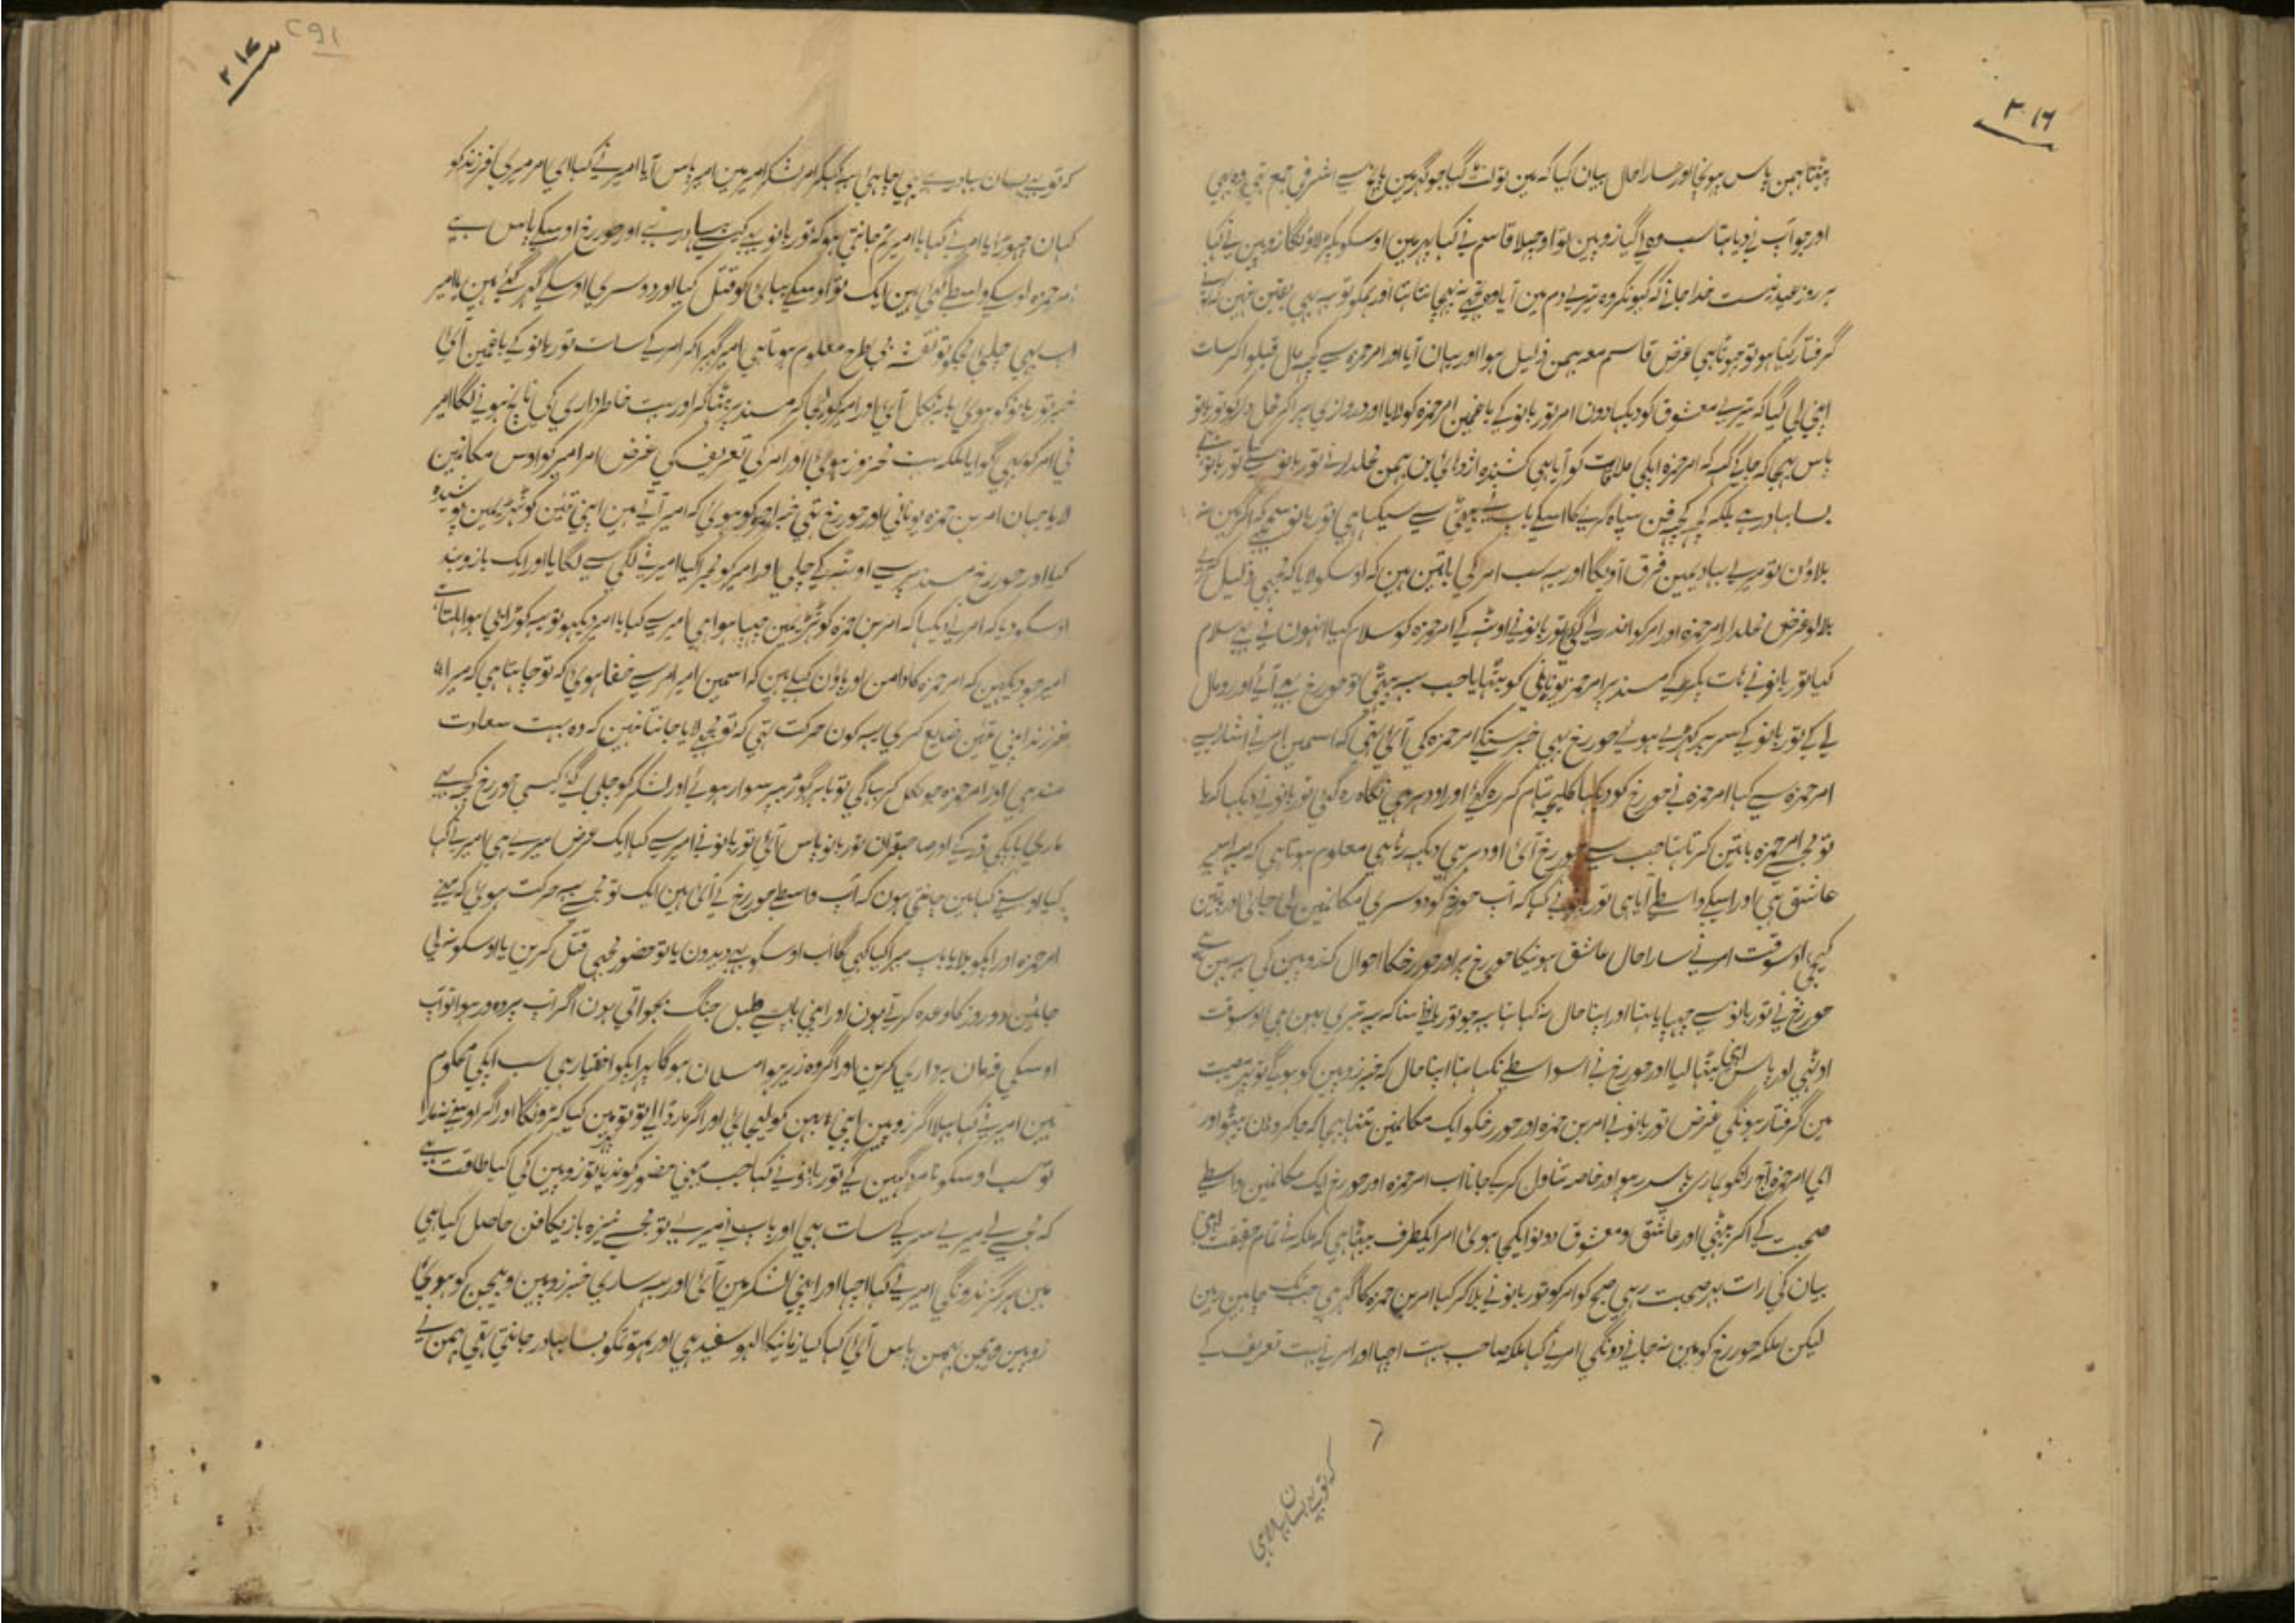 ۳۰۱۶
پیٹتا بہمن پاس پہونچا اور سارا حال بیان کیا کہ مین تو لٹ گیا جو گہر مین سے اشرفی جمع تہی وہ بہی
اور جو آپ نے دیا تہا سب وہ لے گیا زوبین تو اوچہلا قاسم نے کہا پہر مین اوسکو پکڑ لاؤنگا زوبین نے کہا
ہر روز عید نیست خدا جانے کہ کیونکر وہ تیرے دم مین آیا وہ تجہے نہ پہچانتا تہا اور ہمکو تو یہ بہی یقین نہین کہ تونے
گرفتار کیا ہو تو جہوٹا ہی غرض قاسم معہ بہمن ذلیل ہوا اور یہان آیا اور امر حمزہ سے کچہ مال قبلوا کر سات
اپنی لی گیا کہ تیرے معشوق کو دیکہا دون امر نور بانو کے باغمین امر حمزہ کو لایا اور دروازی پر آکر
پاس بہیجا کہ جا کے کہہ کہ امر حمزہ آپکی ملاقات کو آیا ہی کشندہ اژدہا ابن بہمن محلدار نے نور بانو سے
بسا بہادر ہے بلکہ کچہ کچہ فن سپاہ گری کا اسکے باپ سے سیکہا ہی نور بانو سمجہے کہ اگر مین نہ
بلاؤن تو میرے بہادریمین فرق آویگا اور یہ سب امر کی باتین ہین کہ اوسکو لایا کہ مجہی ذلیل کرے
بلالو غرض محلدار امر حمزہ اور امر کو اندر لے گئی نور بانو نے اوٹہہ کے امر حمزہ کو سلام کیا انہون نے بہی سلام
کیا نور بانو نے ہات پکڑ کے مسند پر امر حمزہ یونانی کو بیٹہایا جب سب بیٹہی تو حور رخ بہی آئے اور رومال
لے کے نور بانو کے سر پر کہڑے ہوئے حور رخ بہی خبر سنکے امر حمزہ کی آئی تہی کہ اسمین امر نے اشارہ سے
امر حمزہ سے کہا امر حمزہ نے حور رخ کو دیکہا کلیجہ تہام کر رہ گئے اور اودہر ہی نگاہ رہ گئی نور بانو نے دیکہا کہ یا
تو مجہسے امر حمزہ باتین کرتا تہا جب سے حور رخ آئی اودہر ہی دیکہہ رہا ہی معلوم ہوتا ہی کہ یہ اسپے
عاشق ہی اور اسیکے واسطے آیا ہی نور بانو نے کہا کہ آپ حور رخ کو دوسری مکانمین لی جائی اور باتین
کیجی اوسوقت امر نے سارا حال عاشق ہونیکا حور رخ پر اور حور رخکا احوال کہ زوبین کی یہ بہن ہے
حور رخ نے نور بانو سے چہپایا تہا اور اپنا حال نہ کہا تہا یہ جو نور بانو نے سنا کہ یہ تیری بہن ہی اوسوقت
اوٹہی اور پاس اپنی بیٹہا لیا اور حور رخ نے اسواسطے نکہا تہا اپنا حال کہ خبر زوبین کو ہوگی تو پہر مصیبت
مین گرفتار ہونگی غرض نور بانو نے امر بن حمزہ اور حور رخکو ایک مکانمین تنہا بہیجا کہ جا کر وہان بیٹہو اور
ای امر حمزہ آج راتکو ہماری پاس رہو اور خاصہ تناول کر کے جانا اب امر حمزہ اور حور رخ ایک مکانمین واسطے
صحبت کے آکر بیٹہی اور عاشق و معشوق دونو ایکجی ہوئی امر ایکطرف بیٹہا ہی کہ ملکہ نے تمام حقیقت اپنی
بیان کی رات بہر صحبت رہی صبح کو امر کو نور بانو نے بلا کر کہا امر بن حمزہ کا گہر ہی جب تک چاہین رہین
لیکن ملکہ حور رخ کو مین نہ جانے دونگی امر نے کہا ملکہ صاحب بہت اچہا اور امر نے بہت تعریف کے
کہ تو بہی بسا بہادر ہی
۳۰۱۷
291
کہ تو بہی بسا بہادر ہے ہی چاہی یہ کہکر امر لشکر امیر مین امیر پاس آیا امیر نے کہا ای امر میری فرزند کو
کہان چہوڑ آیا امر نے کہا یا امیر تم جانتی ہو کہ نور بانو یہ کیسے بہادر ہے اور حور رخ اوسکے پاس ہے
امر حمزہ اوسکے واسطے گئی ہین ایک تو اوسکے بہائی کو قتل کیا اور دوسری اوسکے گہر گئے ہین یا امیر
اب بہی چلی مجکو تو نقشہ بی طرح معلوم ہوتا ہی امیر گہبرا کر امر کے سات نور بانو کے باغمین آئی
خبر نور بانو کو ہوئی باہر نکل آئی اور امیر کو لیجا کر مسند پر بیٹہا کر اور بہت خاطرداری کی ناچ ہونے لگا امیر
نی امر کو بہی گوایا ملکہ بہت محظوظ ہوئی اور امر کی تعریف کی غرض امر امیر کو اوس مکانمین
لایا جہان امر بن حمزہ یونانی اور حور رخ تہی خبر امر کو ہوئی کہ امیر آتے ہین اپنی تئین کوٹہڑیمین پوشیدہ
کیا اور حور رخ مسند پر سے اوٹہہ کے چلی اور امیر کو مجرا کیا امیر نے گلی سے لگایا اور ایک بازوبند
اوسکو دیا کہ امر نے دیکہا کہ امر بن حمزہ کوٹہڑیمین چہپا ہوا ہی امیر سے کہا یا امیر دیکہو تو یہ کواڑ ہلتا ہے
امیر جو دیکہین کہ امر حمزہ کا دامن اور پاؤن کہلے ہین کہ اسمین امیر امر سے خفا ہوئی کہ تو چاہتا ہی کہ میرا
فرزند اپنی تئین ضایع کری یہ کون حرکت تہی کہ تو مجہے لایا جانتا نہین کہ وہ بہت سعادت
مند ہی اور امر حمزہ جو نکل کر بہاگی تو باہر گہوڑی پر سوار ہوئے اور لشکر کو چلی گئے کسی حور رخ کے
ماری پاپکی ڈر کے اور صاحبقران نور بانو پاس آئی نور بانو نے امیر سے کہا ایک عرض میرے ہی امیر نے کہا
کیا اوسنے کہا مین جانتی ہون کہ آپ واسطے حور رخ کے آئی ہین ایک تو مجہسے یہ حرکت ہوئی کہ مینے
امر حمزہ اور آپکو بلایا باپ میرا کیا کہی گا اب اوسکو بہی دیدون یا تو حضور مجہی قتل کرین یا اوسکو نہ لی
جائین دو روز کا وعدہ کرتے ہون اور اپنی باپ سے طبل جنگ بجواتی ہون اگر آپ پر وہ ور ہوا تو آپ
اوسکی فرمان برداری کرین اور اگر وہ زیر ہوا مسلمان ہوگا پہر آپکو اختیار ہی سب آپکی محکوم
ہین امیر نے کہا بہلا اگر زوبین اپنی بہن کو لیجائے اور اگر مار ڈالے تو تو مین کیا کرونگا اور اگر اوسنے نہ مارا
تو سب اوسکو نامرد کہین گے نور بانو نے کہا جب مینے حضور کو ندیا تو زوبین کی کیا طاقت ہے
کہ مجہسے لے میرے سر کے سات ہی اور باپ نے میرے تو مجہسے نیزہ بازیکا فن حاصل کیا ہی
مین ہرگز نہ دونگی امیر نے کہا اچہا اور اپنی لشکر مین آئی اور یہ ساری خبر زوبین و بیجن کو ہوئی
زوبین و بیجن بہمن پاس آئی کہا کیا زمانیکا لہو سفید ہی اور ہم تو تمکو بسا بہادر جانتی تہی بہمن نے